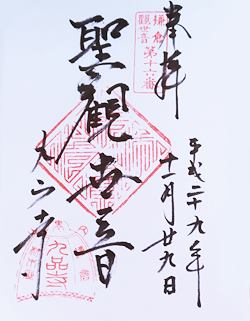 奉拝
鎌倉
観世音
第十六番
平成二十九年
十一月廿九日
聖観世音
九品寺
九品寺